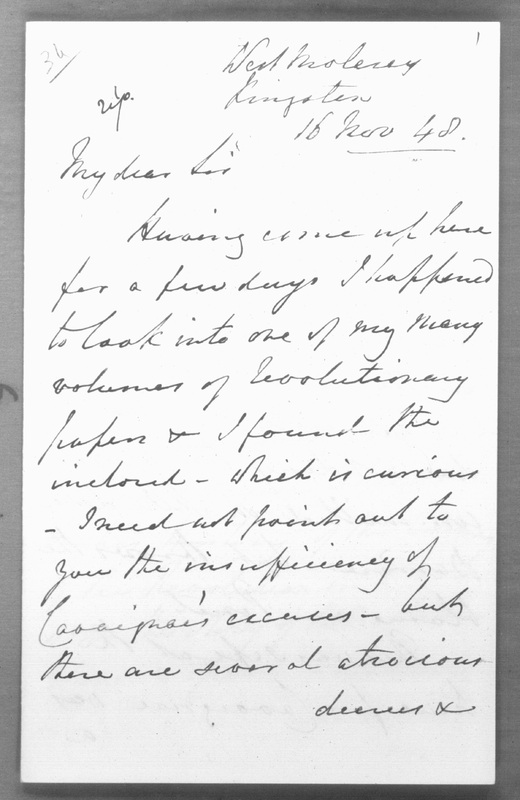 West Molesey
Kingston
16 Nov 48.
My dear Sir
Having come up here
for a few days I happened
to look into one of my many
volumes of Revolutionary
papers & I found the
inclosed - which is curious
- I need not point out to
you the insufficiency of
Cavaignac's excuses - but
there are several atrocious
decrees &